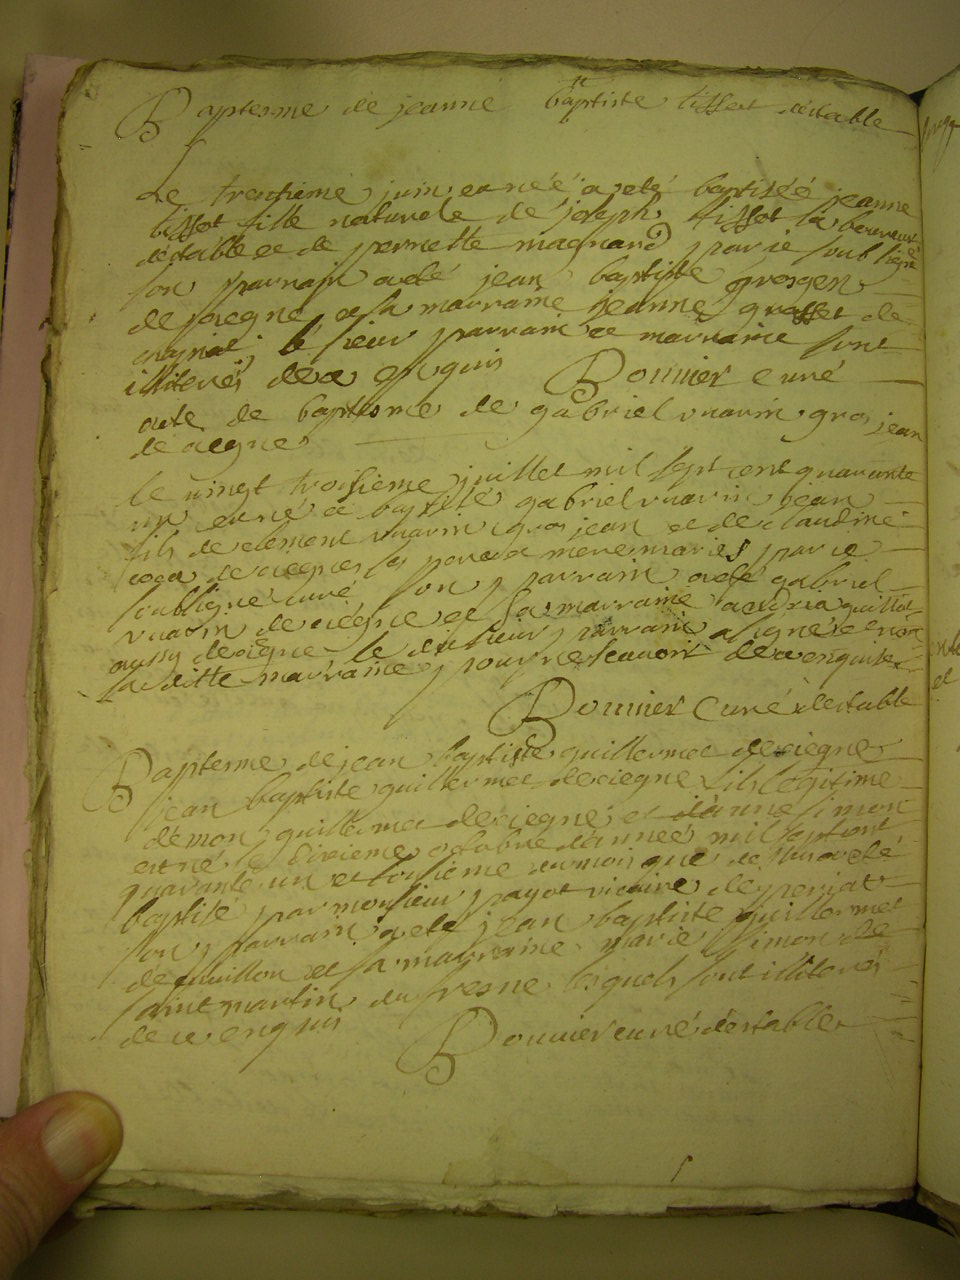 Baptesme de jeanne baptiste tissot destable
Le trentieme juin est née a eté baptiséé jeanne
tissot fille naturele de joseph tissot
destable et de pernette magnard par ie soub signé
son parrain a eté jean baptiste grosgen
de ciegne et la marraine jeanne grosset de
le sieur parrain et marraine sont
illiterés de ce enquis Bonnier curé
acte de baptesme de gabriel vuarin gros jean
de ciegne
le vingt troisieme juillet mil sept cent quarante
un est né et baptisé gabriel vuarin jean
fils de clement vuarin gros jean et de claudine
de ciegne les pere et mere mariés par ie
soubsigné curé son parrain a eté gabriel
vuarin de ciegne et sa marraine andria guillot
aussy de ciegne le dit sieur parrain a signé et non
la ditte marraine pour ne scavoir de ce enquise
Bonnier Curé destable
Baptesme de jean baptiste guillermet de ciegne
jean baptiste guillermet de ciegne fils legitime
de mon guillermet de ciegne et danne simon
est né le dixieme octobre dannéé mil sept cent
quarante un et tousieme du mois que dessus a eté
baptisé par monsieur payot vicaire de peyriat
son parrain a eté jean baptiste guillermet
de et sa marraine marie simon de
saint martin du fresne lesquels sont illiterés
de ce enquis Bonnier curé destable